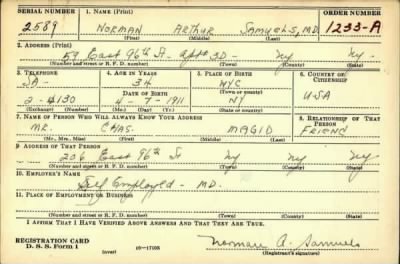 SERIAL NUMBER 1. NAME (Print) ORDER NUMBER
2589 NORMAN ARTHUR SAMUELS, MD. 1233-A
(First) (Middle) (Last)
2. ADDRESS (Print)
59 East 96th St. appt 3D - NY NY
(Number and street or R. F. D. number) (Town) (County) (State)
3. TELEPHONE 4. AGE IN YEARS 5. PLACE OF BIRTH 6. COUNTRY OF CITIZENSHIP
SA- 34 NYC
DATE OF BIRTH (Town or county) USA
2-4130 4-7-1911 NY
(Exchange) (Number) (Mo.) (Day) (Yr.) (State or country)
7. NAME OF PERSON WHO WILL ALWAYS KNOW YOUR ADDRESS 8. RELATIONSHIP OF THAT PERSON
MR. CHAS. MAGID FRIEND
(Mr., Mrs., Miss) (First) (Middle) (Last)
9. ADDRESS OF THAT PERSON
206 East 96th St NY NY
(Number and street or R. F. D. number) (Town) (County) (State)
10. EMPLOYER'S NAME
Self Employed - MD.
11. PLACE OF EMPLOYMENT OR BUSINESS
(Number and street or R. F. D. number) (Town) (County) (State)
I AFFIRM THAT I HAVE VERIFIED ABOVE ANSWERS AND THAT THEY ARE TRUE.
REGISTRATION CARD
D. S. S. Form 1 (over) 16-17105 Norman A. Samuels
(Registrant's signature)